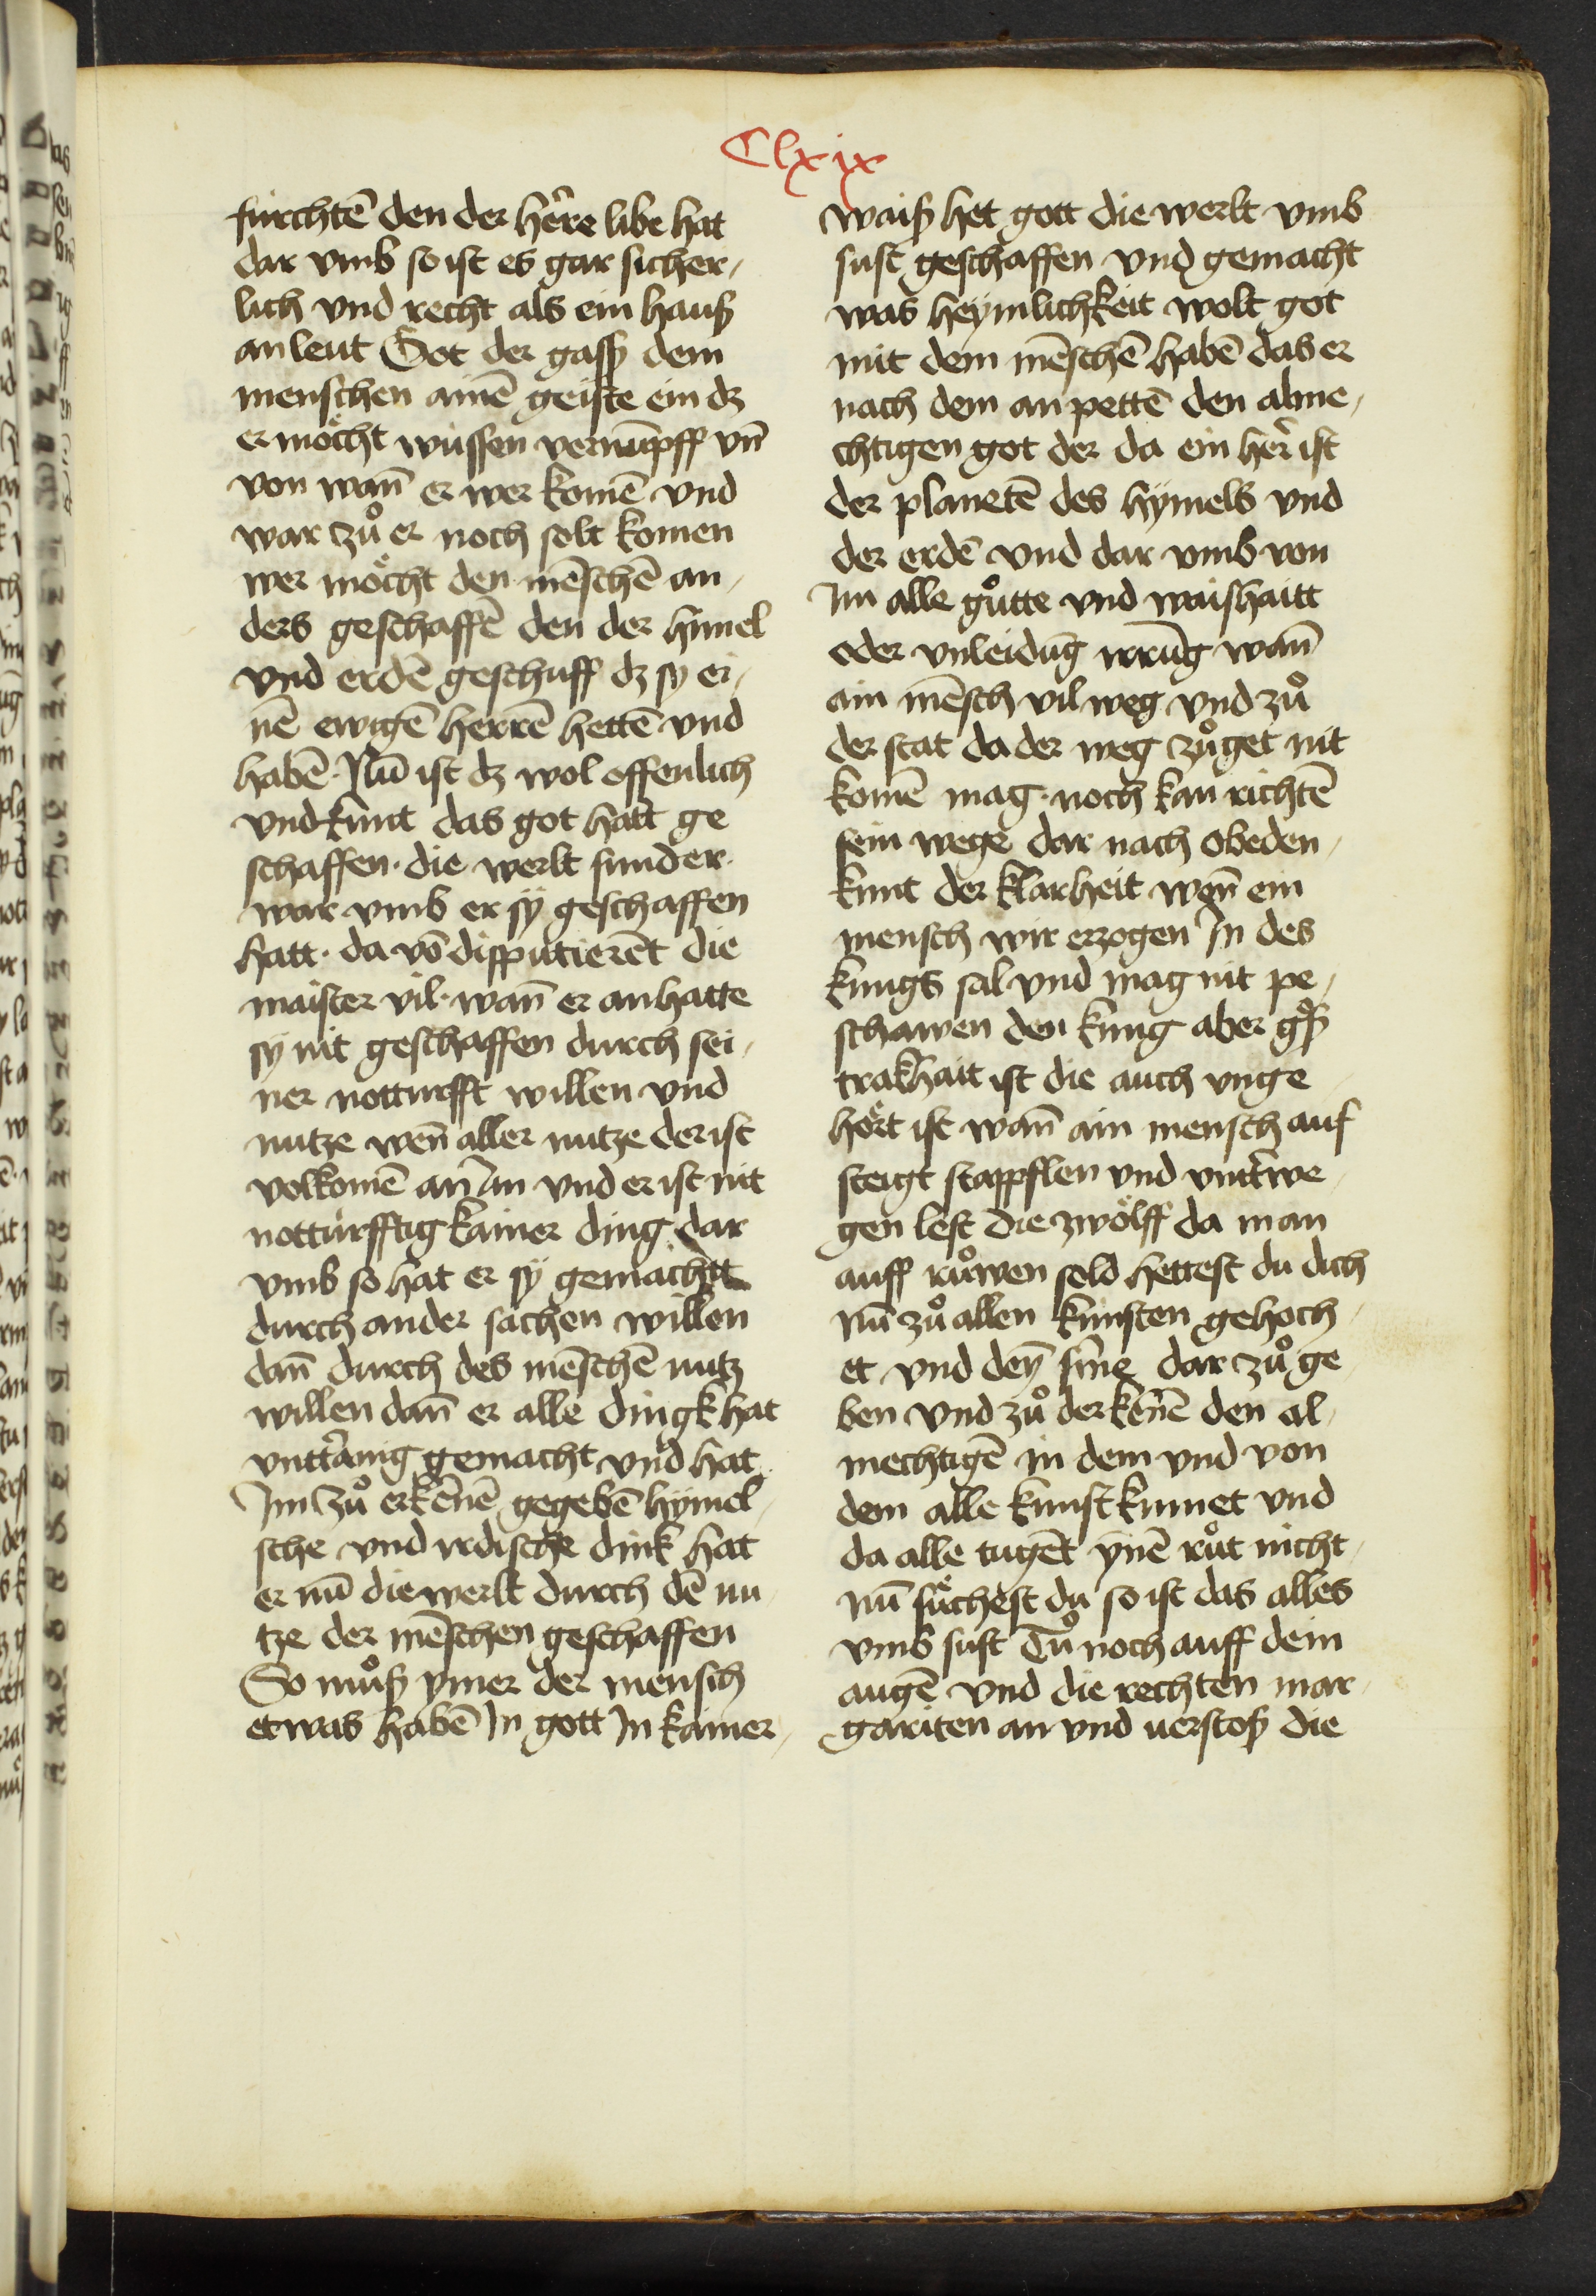 Clxix
fürchtē den der her̄e libe hat
dar vmb so ist es gar sicher,
lich vnd recht als ein hauß
an leut Got der gasß dem
menschen ainē geiste ein dz
er möcht wüssen vernūpff vn̄
von wan̄ er wer komē vnd
war zů er noch solt komen
wer möcht den mēschē an,
ders geschaffē den der himel
vnd erdē geschuff dz sy ei,
nē ewigē herrē hettē vnd
habē. Nū ist dz wol offenlich
vnd kunt das got hatt ge
schaffen. die werlt sunder.
war vmb er sÿ geschaffen
hatt. da vō disputierēt die
maister vil. wan̄ er an hatte
sy nit geschaffen durch sei,
ner notturfft willen vnd
nutze wen̄ aller nutze der ist
volkomē an Im vnd er ist nit
notturfftig kainer ding dar
vmb so hat er sÿ gemachtt
durch ander sachen willen
dan̄ durch des mēschē nutz
willen dan̄ er alle dingk hat
vntt̄anig gemacht vnd hat
Im zů erkēnē gegebē hÿmel,
sche vnd irdische dink hat
er nū die werlt durch dē nu,
tze der mēschen geschaffen
So můß ymer der mensch
etwas habē In gott In kainer,
waiß het gott die werlt vmb
sust geschaffen vnd gemacht
was heÿmlichkeit wolt got
mit dem mēschē habē das er
nach dem an pettē den alme,
chtigen got der da ein her̄ ist
der planetē des hÿmels vnd
der erdē vnd dar vmb von
Im alle gůtte vnd waishaitt
oder vnleidūg irrūg wan̄
ain mēsch vil weg vnd zů
der stat da der weg zů get nit
komē mag. noch kan richtē
sein wege dar nach obeden,
kunt der klarheit wen̄ ein
mensch wir erzogen In des
kungs sal vnd mag nit pe,
schawen den kung aber gͦß
trakhait ist die auch vnge
hört ist wan̄ ain mensch auf
steigt stappflen vnd vnt̄we,
gen lest die zwölff da man
auff růwen sold hettest du dich
nū zů allen kunsten gehoch,
et vnd deȳ sine dar zů ge
ben vnd zů der kēnē den al,
mechtigē in dem vnd von
dem alle kunst kumet vnd
da alle tugēt ynē růt nicht,
nū sůchest du so ist das alles
vmb sust Tů noch auff dein
augē vnd die rechten mar,
gariten an vnd uerstoß die